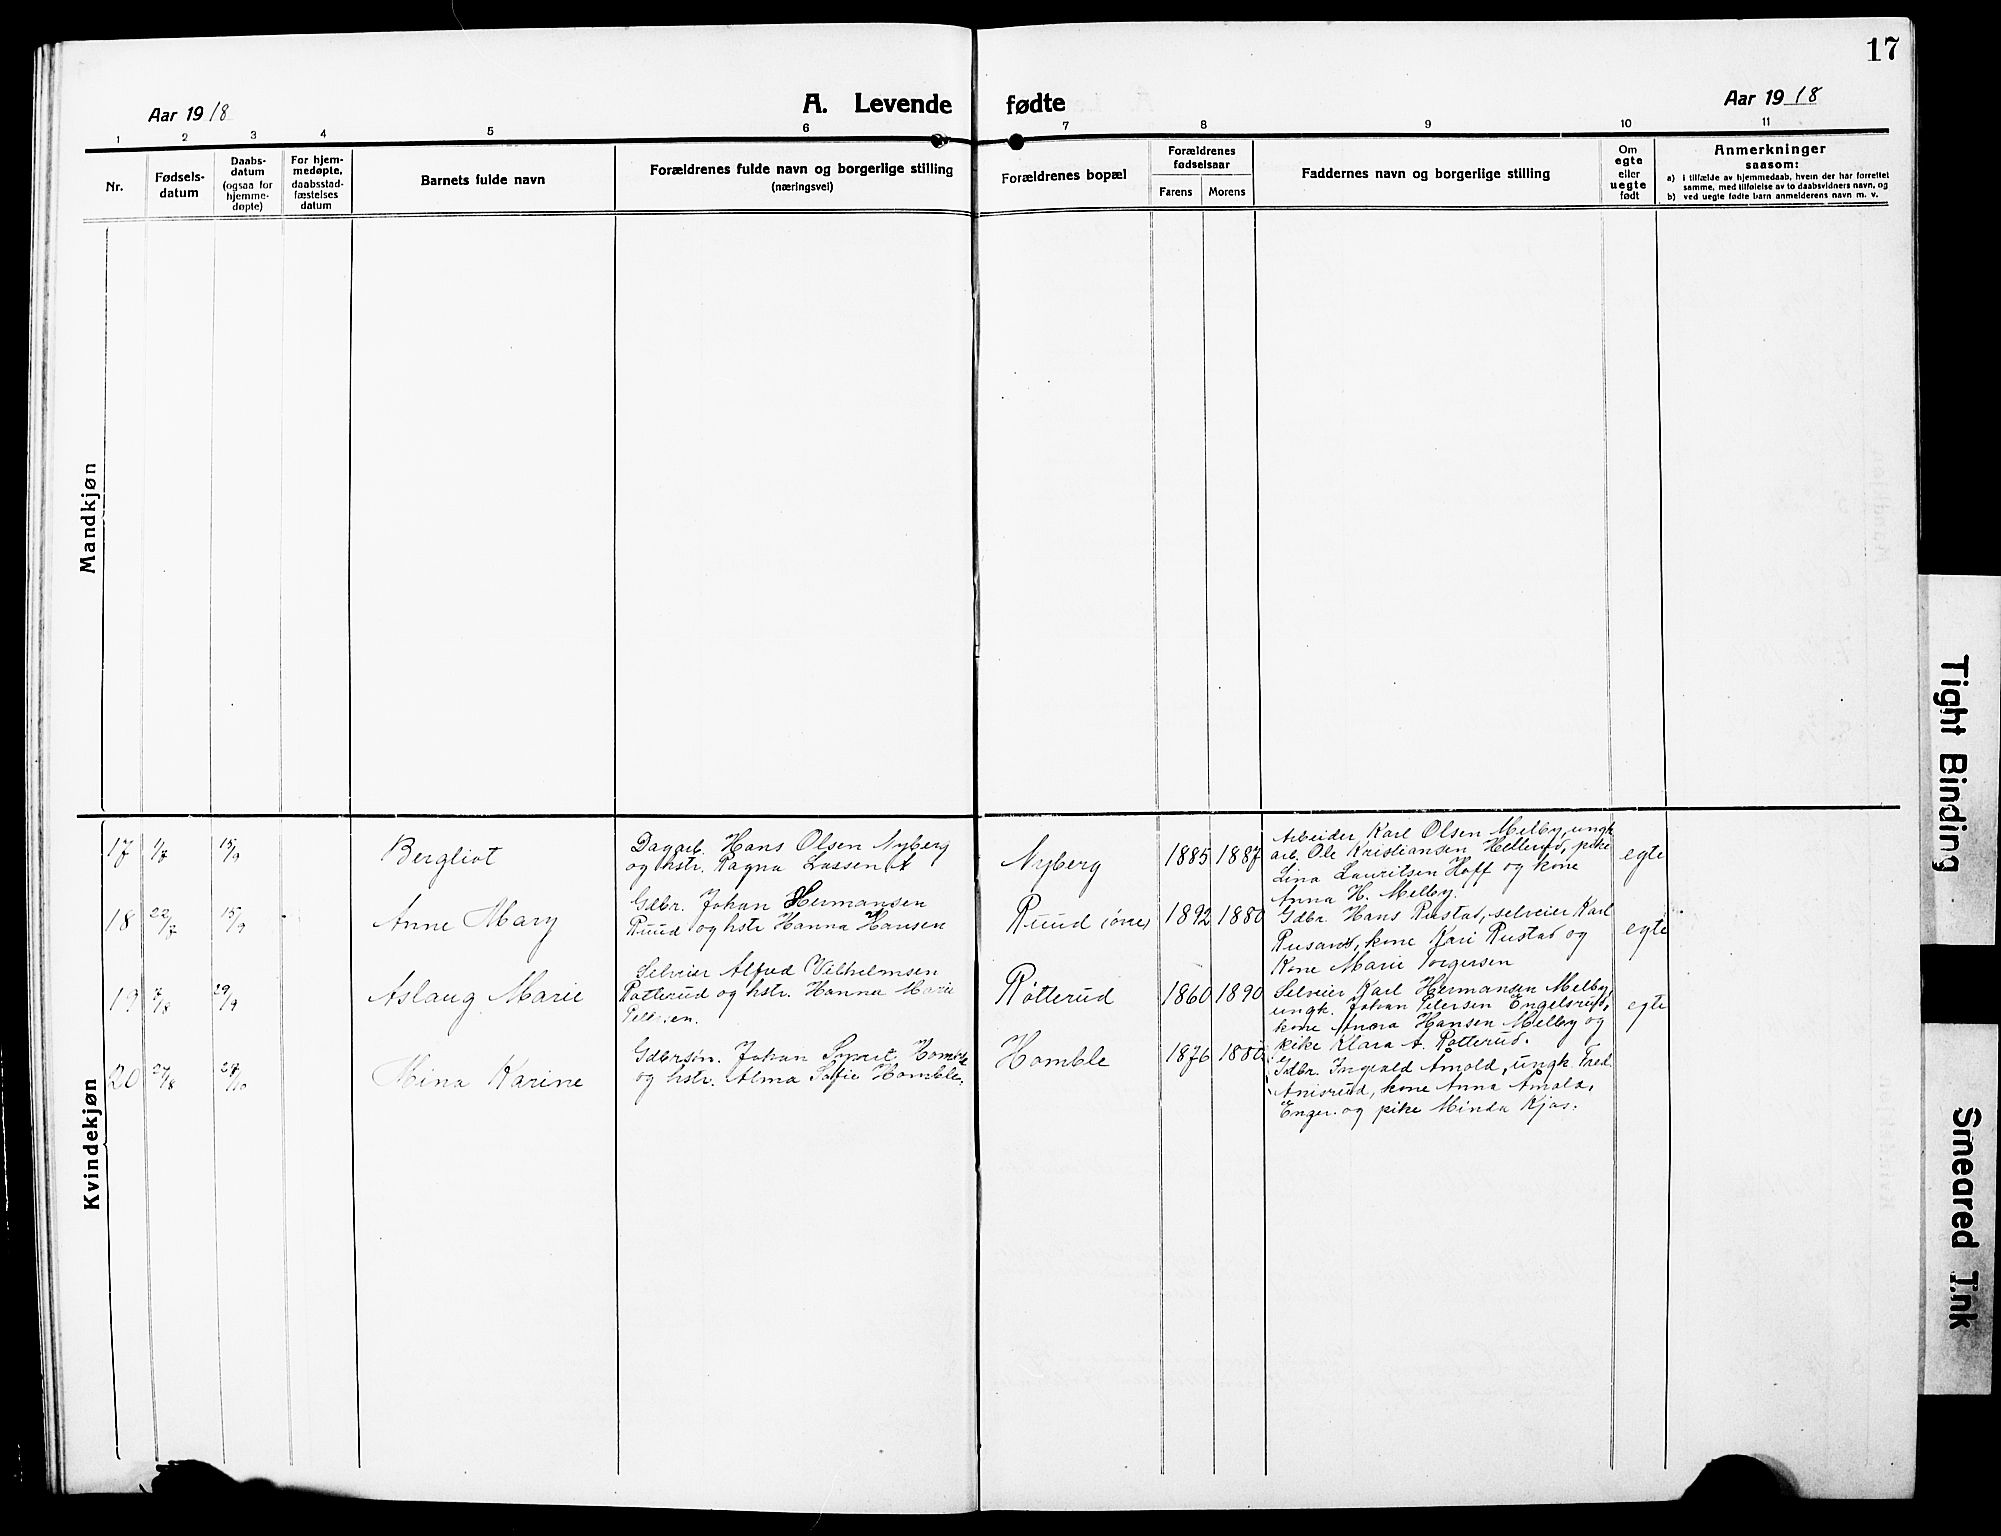 17
Aar 1918
A. Levende fødte
Aar 1918
1 2 3 4 5 6 7 8 9 10 11
Nr.
Fødsels-
datum
Daabs-
datum
(ogsaa for
hjemme-
døpte)
For hjem-
medøpte,
daabsstad-
fæstelses
datum
Barnets fulde navn
Forældrenes fulde navn og borgerlige stilling
(næringsvei)
Forældrenes bopæl
Forældrenes
fødselsaar
Farens Morens
Faddernes navn og borgerlige stilling
Om
egte
eller
uegte
født
Anmerkninger
saasom:
a) i tilfælde av hjemmedaab, hvem der har forrettet
samme, med tilføielse av to daabsvidners navn, og
b) ved uegte fødte barn anmelderens navn m. v.
Mandkjøn
Kvindekjøn
17 1/7 15/9
Bergliot
Dagarb. Hans Olsen Nyberg
og hstr. Ragna Lassen
Nyberg
1885 1887
Arbeider Karl Olsen Melby, ungk.
arb. Ole Kristiansen Hellerud, pike
Lina Lauritsen Hoff og kone
Anna H. Melby.
egte
18 22/7 15/9
Anne Mary
Gdbr. Johan Hermansen
Ruud og hstr Hanna Hansen
Ruud
1892 1880
Gdbr. Hans Rustad, selveier Karl
kone Kari Rustad og
Kone Marie Torgersen
egte
19 7/8 29/9
Aslaug Marie
Selveier Alfred Vilhelmsen
Røtterud og hstr. Hanna Marie
Røtterud
1860 1890
Selveier Karl Hermansen Melby,
ungk. Johan Petersen Engelsrud,
kone Hansen Melby og
pike Klara A. Røtterud.
egte
20 27/8 27/10
Mina Karine
Gdbrsøn. Johan
og hstr. Alma Sofie Homble.
Homble
1876 1880
Gdbr. Ingvald ungk. Fred.
kone Anna
Enger. og pike Minda Kjos.
Tight Binding
Smeared Ink